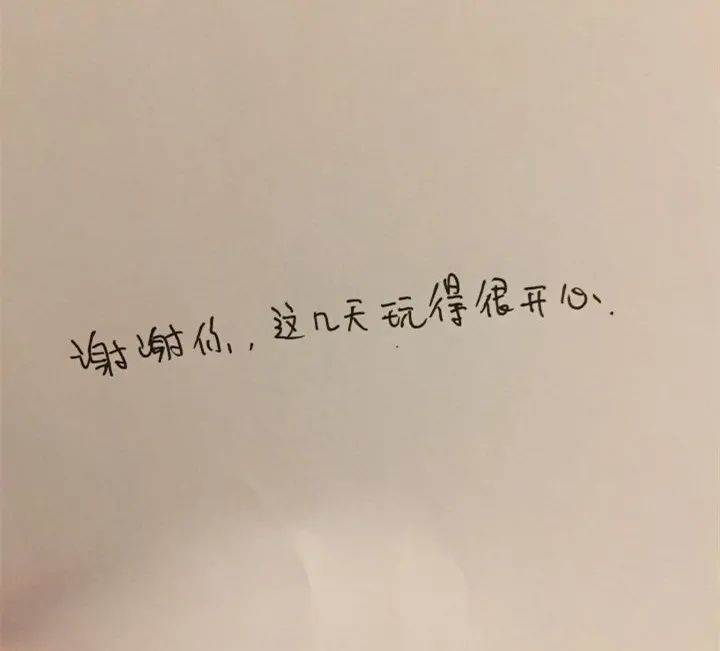 谢谢你,这几天玩得很开心.